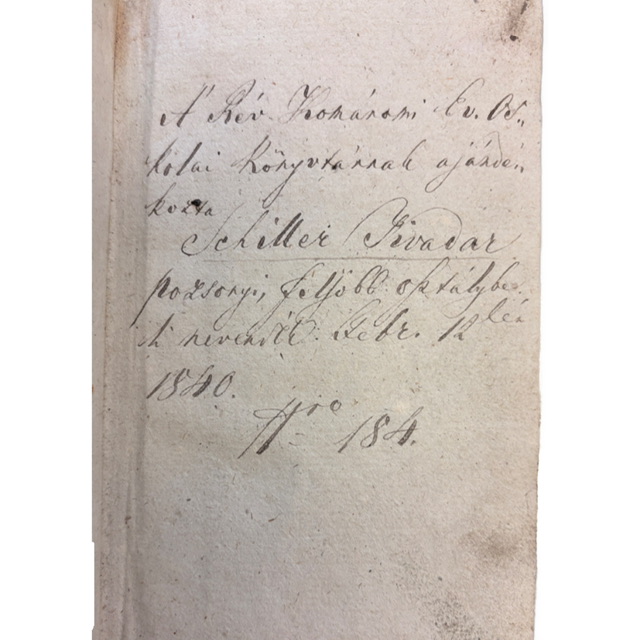 A' Rév Komáromi Ev. Os„
kolai könyvtárnak ajándé„
kozta
Schiller Tivadar
pozsonyi, feljőbb osztálybe„
li nevendék. Febr. 12dén
1840.
Nro 184.